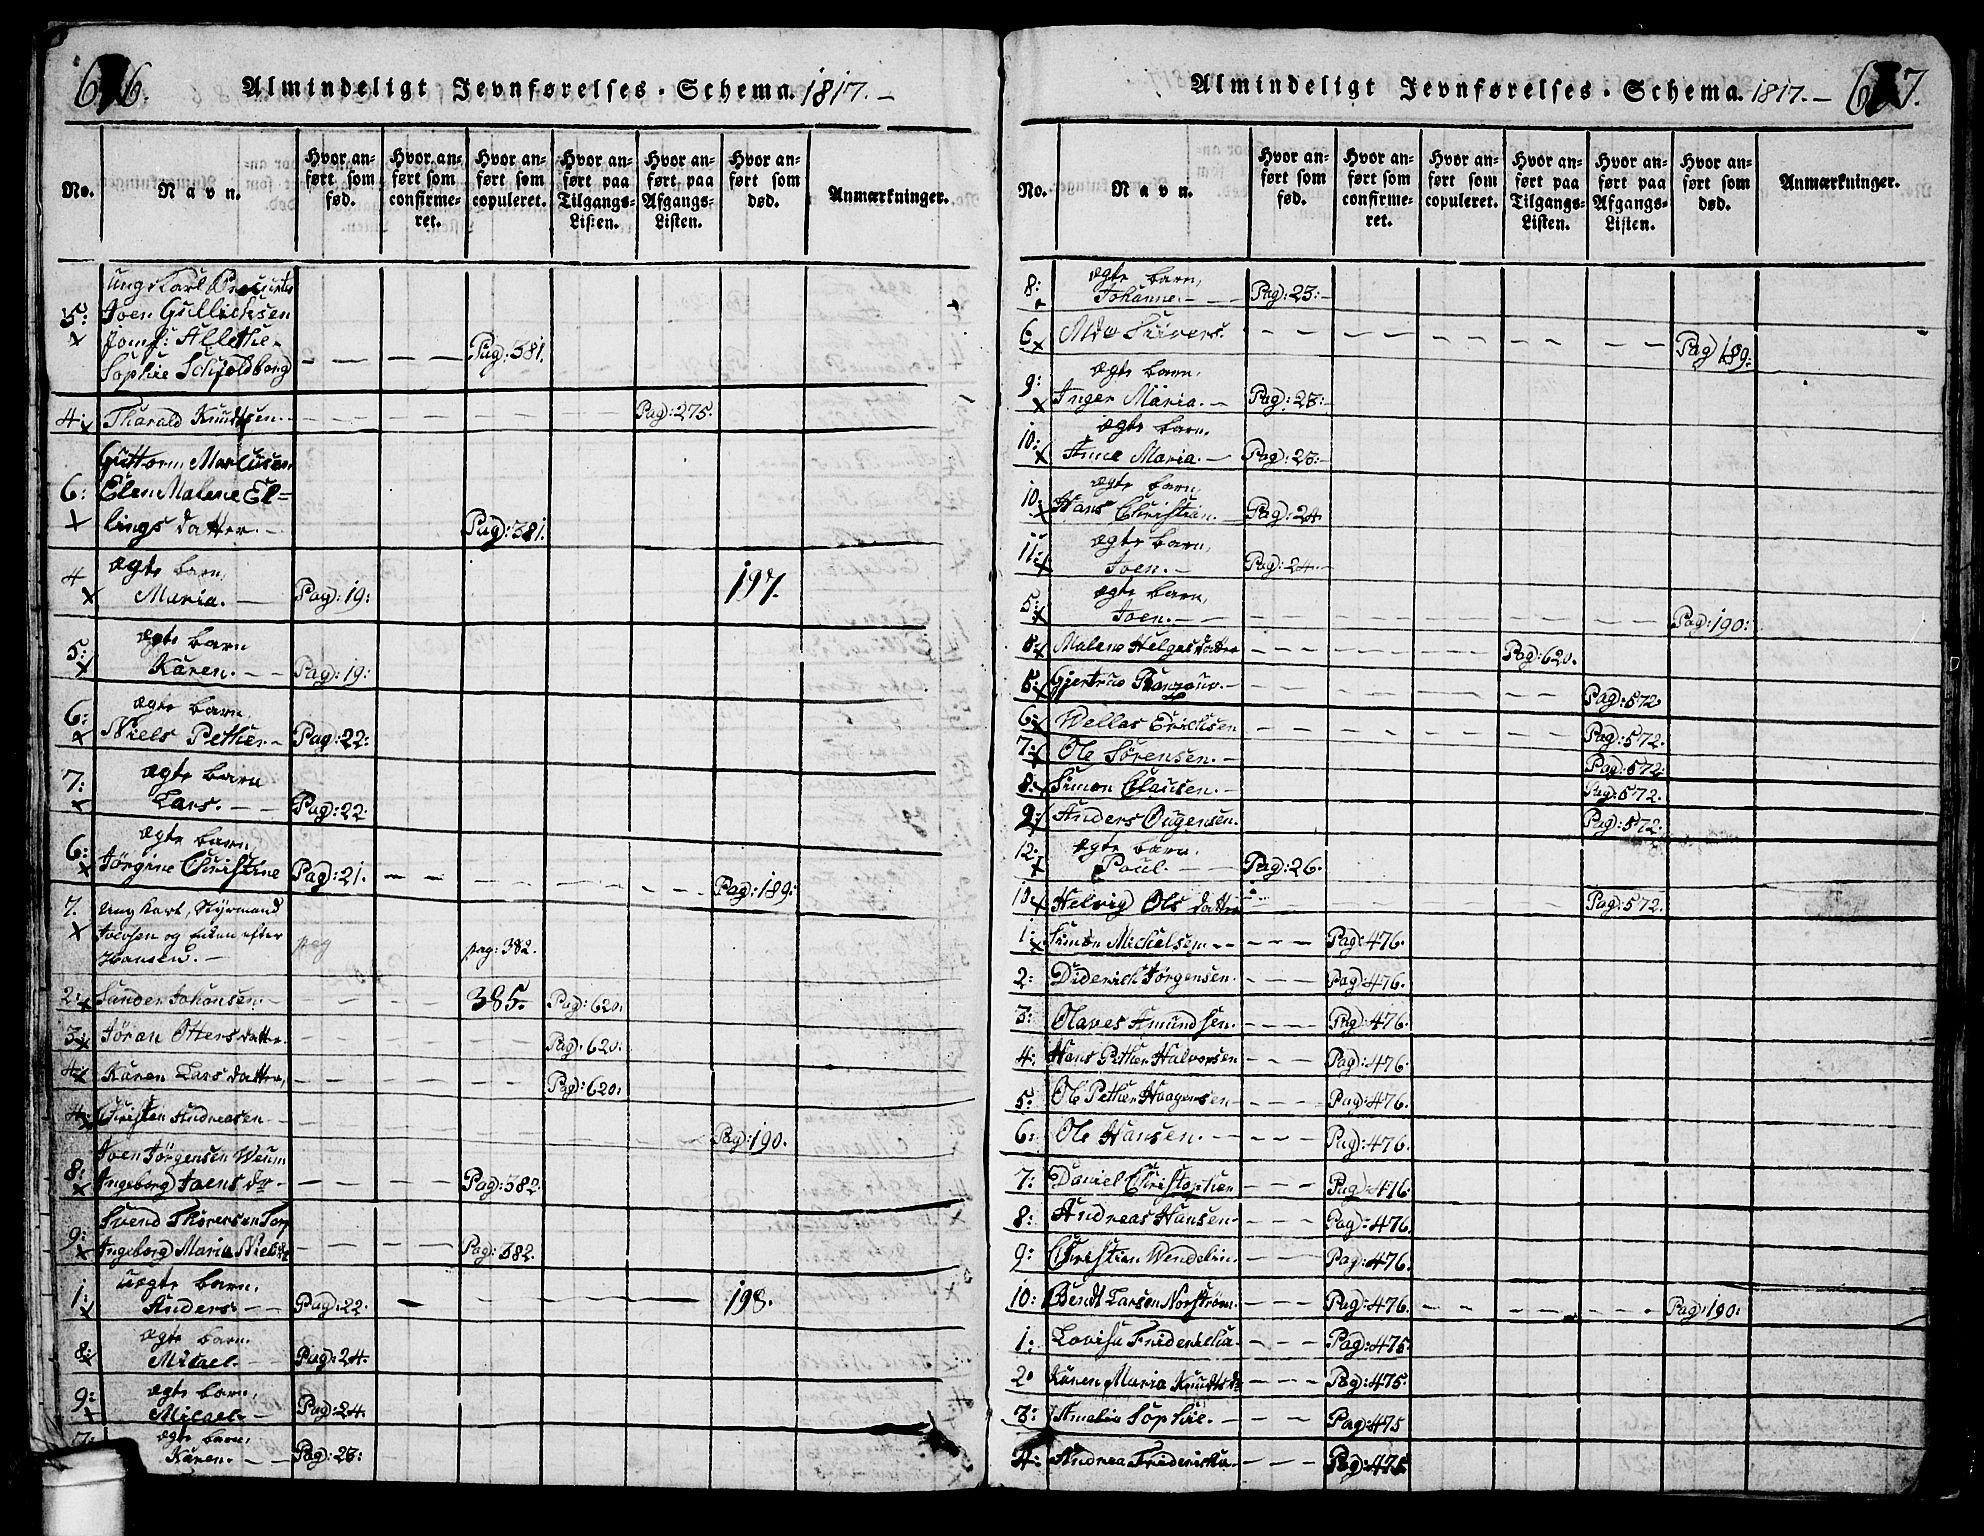 Almindeligt Jevnførelses-Schema. 1817.
No.
Navn.
Hvor anført som fød.
Hvor anført som confirmeret.
Hvor anført som copuleret.
Hvor anført paa Tilgangs-Listen.
Hvor anført paa Afgangs-Listen.
Hvor anført som død.
Anmærkninger.
5: Ung Karl
Joen Gullichsen
Jomf: Allethe
Sophie Schjoldborg Pag: 381.
4: Tharald Knudtsen. Pag: 275.
Guttorm Marcusen
6: Elen Malene El=
lings datter. Pag: 381.
4 ægte barn,
Maria. Pag: 19: 197.
5: ægte barn
Karen. Pag: 19:
6: ægte barn,
Niels Pether Pag: 22:
7: ægte barn
Lars. Pag: 22.
6: ægte barn,
Jørgine Christine Pag: 21. Pag: 189:
7. Ung Karl, Styrmand
Jochsen og Enken efter
Hansen. pag pag: 382.
2: Sander Johansen. 385. Pag: 620.
3: Jøran Otters datter. Pag: 620.
4: Karen Lars datter, Pag: 620.
4: Christen Andreasen Pag: 190.
Joen Jørgensen Weum
8: Ingeborg Joens dr Pag: 382
Svend Thorersen Torp
9: Ingeborg Maria Niels dr Pag: 382.
1: uægte barn.
Anders Pag: 22. 198.
8: ægte barn.
Micael. Pag: 24.
9: ægte barn,
Micael. Pag: 24.
7: ægte barn,
Karen. Pag: 23:
Almindeligt Jevnførelses-Schema. 1817.
No.
Navn.
Hvor anført som fød.
Hvor anført som confirmeret.
Hvor anført som copuleret.
Hvor anført paa Tilgangs-Listen.
Hvor anført paa Afgangs-Listen.
Hvor anført som død.
Anmærkninger.
8: ægte barn,
Johanne. Pag: 23:
6 Siivers. Pag 189:
9: ægte barn.
Inger Maria. Pag: 23:
10: ægte barn.
Anne Maria. Pag: 23:
10: ægte barn,
Hans Christian. Pag: 24.
11: ægte barn,
Joen. Pag: 24.
5: ægte barn,
Joen. Pag: 190:
Malene Helges datter Pag: 620.
5: Gjertrud Pag: 572
6: Wellas Erichsen Pag: 572.
7: Ole Sørensen. Pag: 572
8: Simon Clausen. Pag: 572.
9: Anders Pag: 572.
12: ægte barn.
Poul. Pag: 26.
10: Helvig Ols datter Pag: 572.
1: Simon Michelsen Pag: 476.
2: Diderich Jørgensen. Pag: 476.
3: Olaves Amundsen. Pag: 476.
4: Hans Pether Halvorsen Pag: 476.
5: Ole Pether Haagensen Pag: 476.
6: Ole Hansen. Pag: 476.
7: Daniel Christophen Pag: 476
8: Andreas Hansen Pag: 476.
9: Christian Wendelin. Pag: 476.
10: Bendt Larsen Norstrøm. Pag: 476. Pag: 190.
1: Lovisa Fridericha Pag: 475.
2: Karen Maria Knudts dr Pag: 475.
3: Amalia Sophie. Pag: 475
4: Andrea Fridericha. Pag: 475